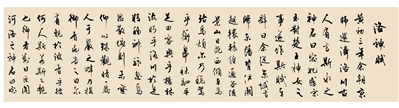 洛神賦
黃初三年余朝京
師還濟洛川古
人有言斯水之
神名曰宓妃感宋
玉對楚王神女之
事遂作斯賦其
辭曰余從京域
言歸東藩背伊闕
越轘轅經通谷陵
景山日既西傾車
殆馬煩爾乃稅駕
乎蘅皋秣駟乎芝
田容與乎陽林
流眄乎洛川於是
精移神駭忽焉
思散俯則未察
仰以殊觀睹一麗
人于巖之畔乃援
御者而告之曰爾
有覿於彼者乎彼
何人斯若斯之艷
也御者對曰臣聞
河洛之神名曰宓